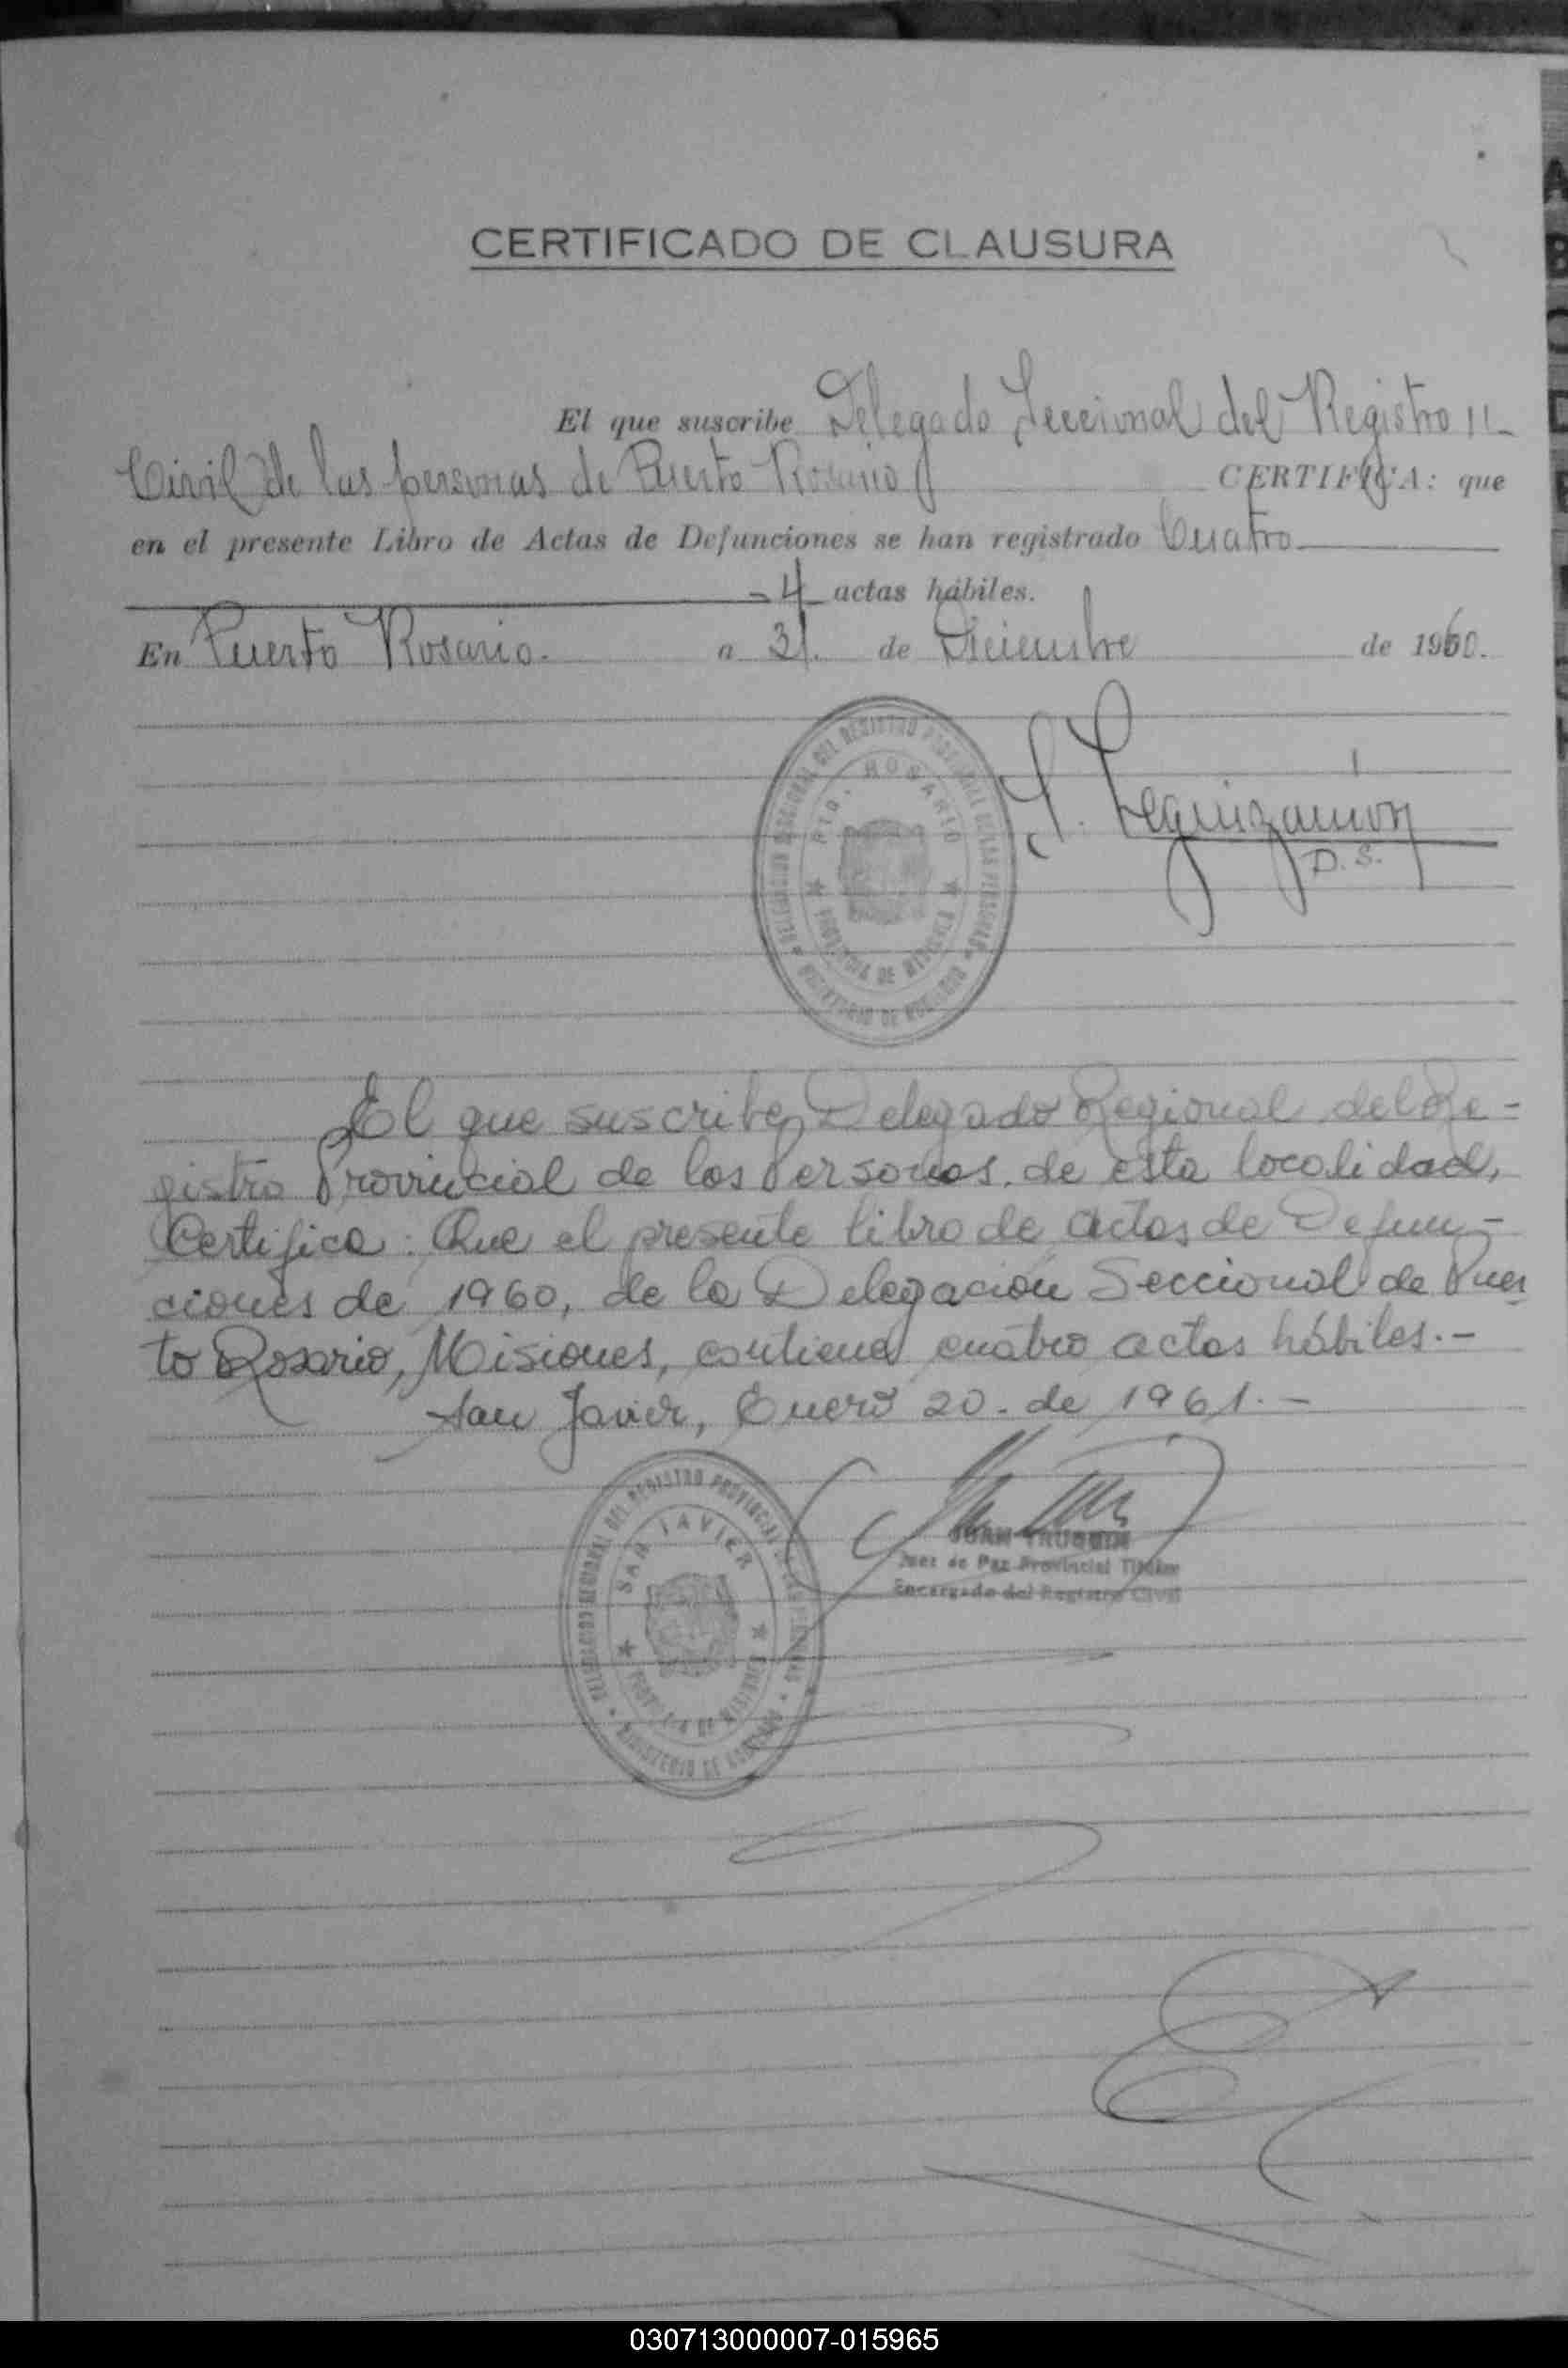 CERTIFICADO DE CLAUSURA
El que suscribe Delegado Seccional del Registro
Civil de las personas de Puerto Rosario CERTIFICA: que
en el presente Libro de Actas de Defunciones se han registrado Cuatro
- 4 actas hábiles.
En Puerto Rosario. a 31. de Diciembre de 1960.
DELEGACION SECCIONAL DEL REGISTRO PROVINCIAL DE LAS PERSONAS
PTO. ROSARIO
PROVINCIA DE MISIONES
MINISTERIO DE GOBIERNO
Leguizamón
D. S.
El que suscribe, Delegado Regional del Re-
gistro Provincial de las Personas, de esta localidad,
Certifica: Que el presente libro de actas de Defun-
ciones de 1960, de la Delegación Seccional de Puer
to Rosario, Misiones, contiene cuatro actas hábiles.-
San Javier, Enero 20. de 1961.-
DELEGACION REGIONAL DEL REGISTRO PROVINCIAL DE LAS PERSONAS
SAN JAVIER
PROVINCIA DE MISIONES
MINISTERIO DE GOBIERNO
JUAN
Juez de Paz Provincial Titular
Encargado del Registro Civil
A
B
C
D
E
030713000007-015965